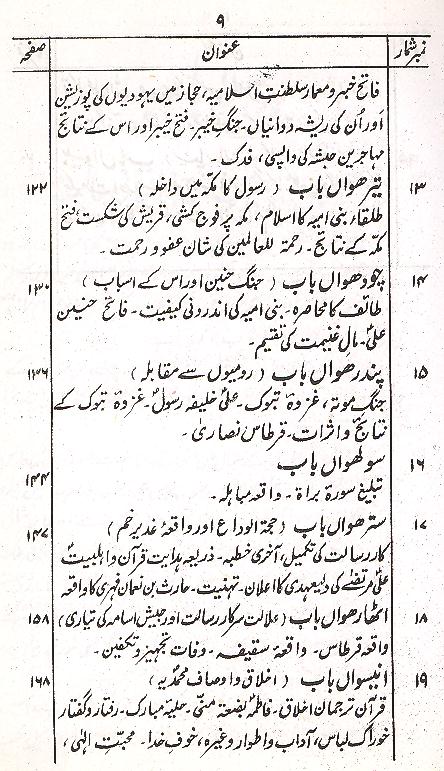 ۹
نمبر شمار عنوان صفحہ
فاتح خیبر و معمار سلطنت اسلامیہ، حجاز میں یہودیوں کی پوزیشن
اور اُن کی ریشہ دوانیاں۔ جنگ خیبر۔ فتح خیبر اور اس کے نتائج
مہاجرین حبشہ کی واپسی، فدک۔
۱۳ تیرھواں باب (رسول کا مکہ میں داخلہ) ۱۲۲
طلقاء بنی امیہ کا اسلام، مکہ پر فوج کشی، قریش کی شکست، فتح
مکہ کے نتائج۔ رحمۃ للعالمین کی شان عفو و رحمت۔
۱۴ چودھواں باب (جنگ حنین اور اس کے اسباب) ۱۳۰
طائف کا محاصرہ۔ بنی امیہ کی اندرونی کیفیت۔ فاتح حنین
علیؑ۔ مال غنیمت کی تقسیم۔
۱۵ پندرھواں باب (رومیوں سے مقابلہ) ۱۳۶
جنگ موتہ، غزوۃ تبوک۔ علیؑ خلیفہ رسولؐ۔ غزوۃ تبوک کے
نتائج و اثرات۔ قرطاس نصاریٰ۔
۱۶ سولھواں باب ۱۴۴
تبلیغ سورۃ براۃ۔ واقعہ مباہلہ۔
۱۷ سترھواں باب (حجۃ الوداع اور واقعۂ غدیر خم) ۱۴۷
کار رسالت کی تکمیل، آخری خطبہ۔ ذریعہ ہدایت قرآن و اہلبیتؑ
علی مرتضےٰ کی ولیعہدی کا اعلان۔ تہنیت۔ حارث بن نعمان فہری کا واقعہ
۱۸ اٹھارھواں باب (علالت سرکار رسالت اور جیش اسامہ کی تیاری) ۱۵۸
واقعہ قرطاس۔ واقعۂ سقیفہ۔ وفات تجہیز و تکفین۔
۱۹ انیسواں باب (اخلاق و اوصاف محمدؐیہ) ۱۶۸
قرآن ترجمان اخلاق۔ فاطمہؑ بضعتہ منّی۔ حلیہ مبارک۔ رفتار و گفتار
خوراک لباس، آداب و اطوار وغیرہ، خوف خدا۔ محبتِ الٰہی،